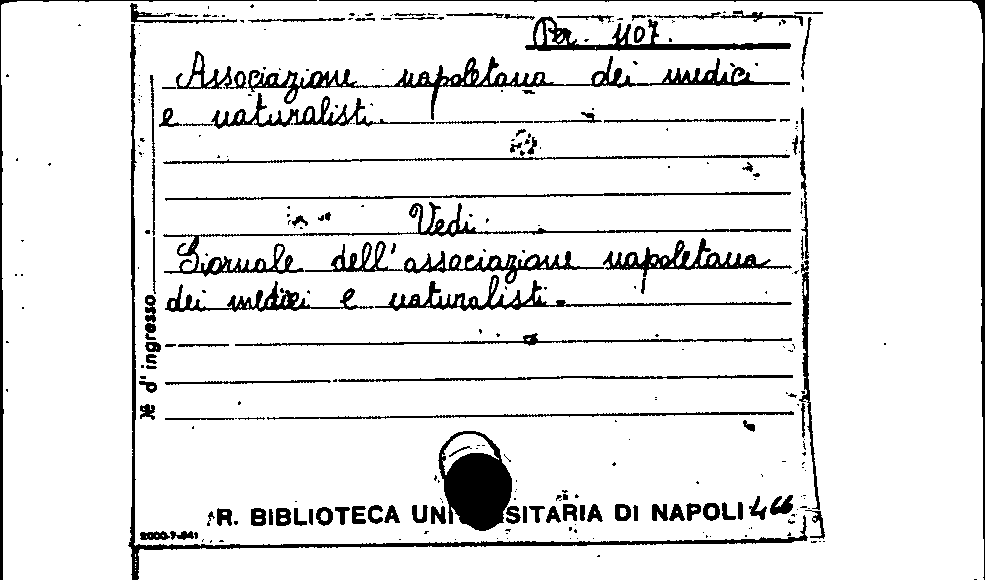 Per. 1107.
Associazione napoletana dei medici
e naturalisti.
Vedi:
Giornale dell'associazione napoletana
dei medici e naturalisti.
N° d'ingresso
R. BIBLIOTECA UNIVERSITARIA DI NAPOLI 466